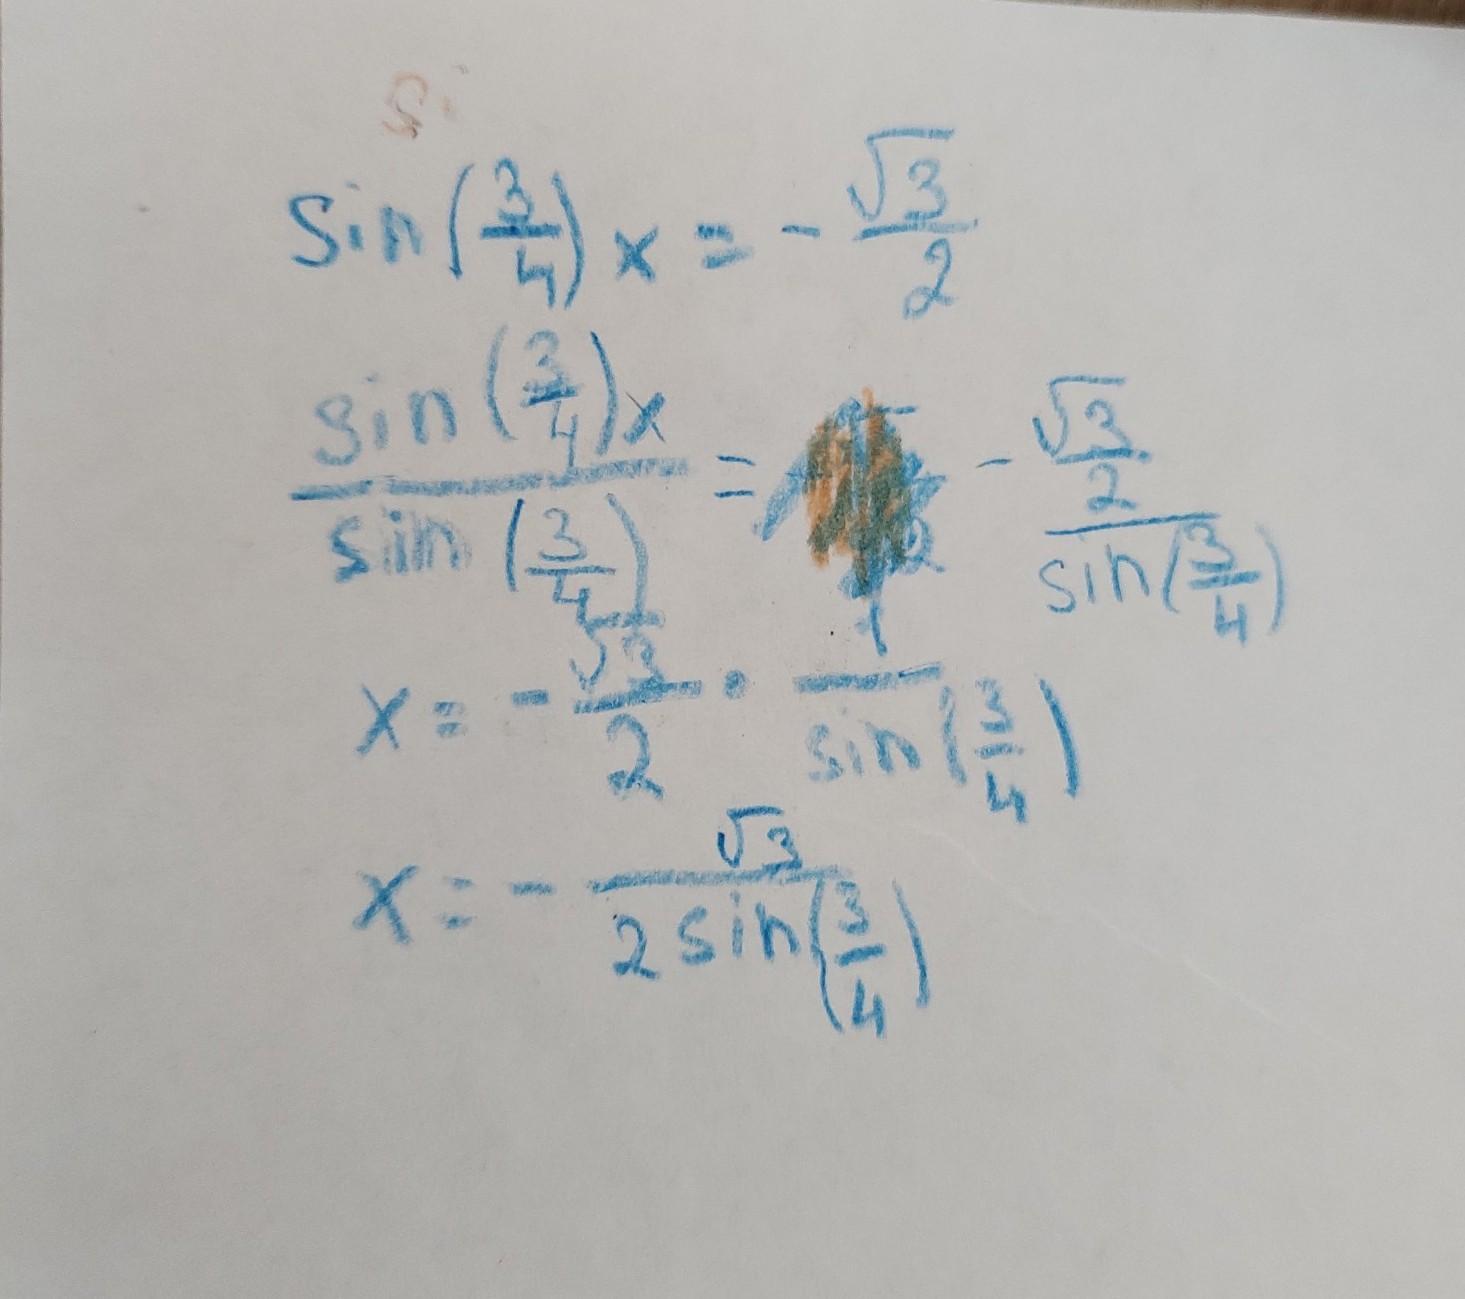 Si
sin(3/4)x = - √3/2
sin(3/4)x / sin(3/4) = - √3/2 / sin(3/4)
x = - √3/2 · 1/sin(3/4)
x = - √3 / 2 sin(3/4)